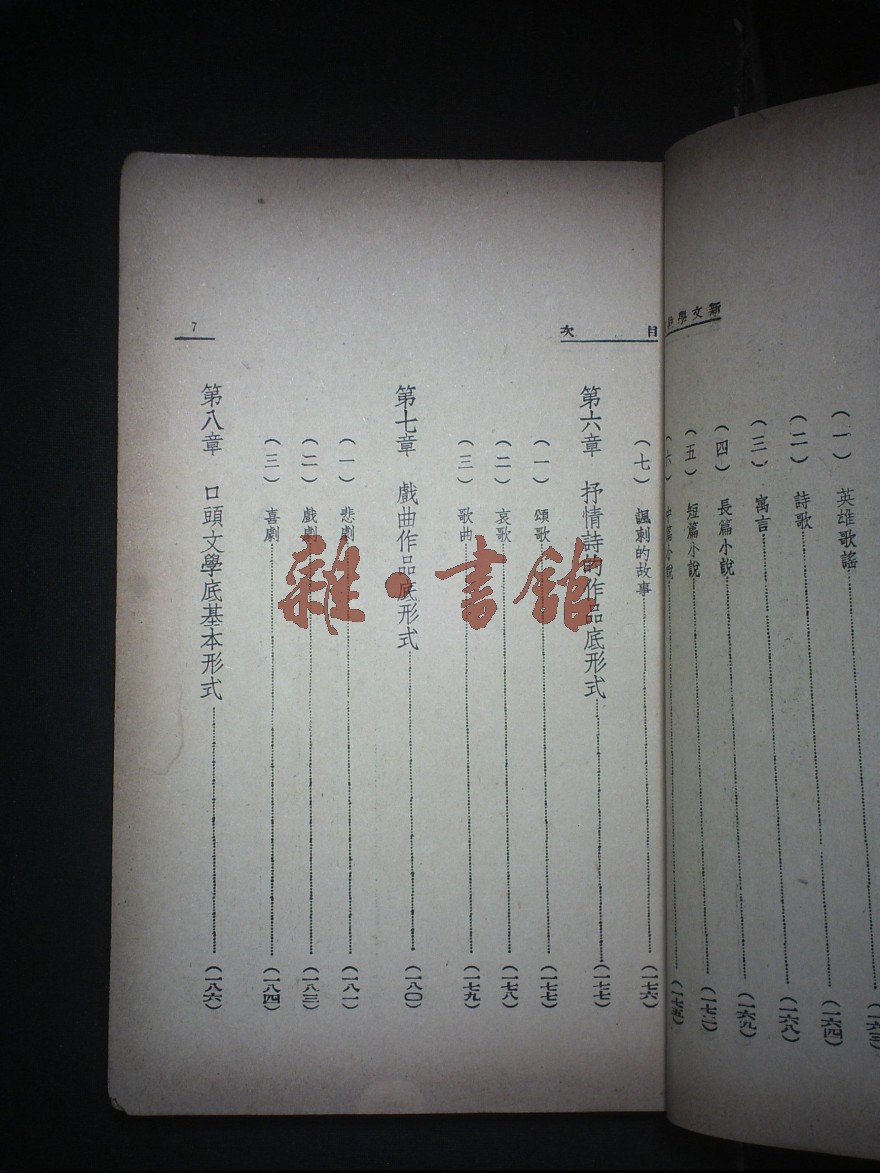 新文學
(一) 英雄歌謠 (一六三)
(二) 詩歌 (一六四)
(三) 寓言 (一六八)
(四) 長篇小說 (一六九)
(五) 短篇小說
(六) 中篇小說
目次
(七) 諷刺的故事 (一七六)
第六章 抒情詩的作品底形式 (一七七)
(一) 頌歌 (一七七)
(二) 哀歌 (一七八)
(三) 歌曲 (一七九)
第七章 戲曲作品底形式 (一八〇)
(一) 悲劇 (一八一)
(二) 戲劇 (一八三)
(三) 喜劇 (一八四)
第八章 口頭文學底基本形式 (一八六)
7
雜·書館